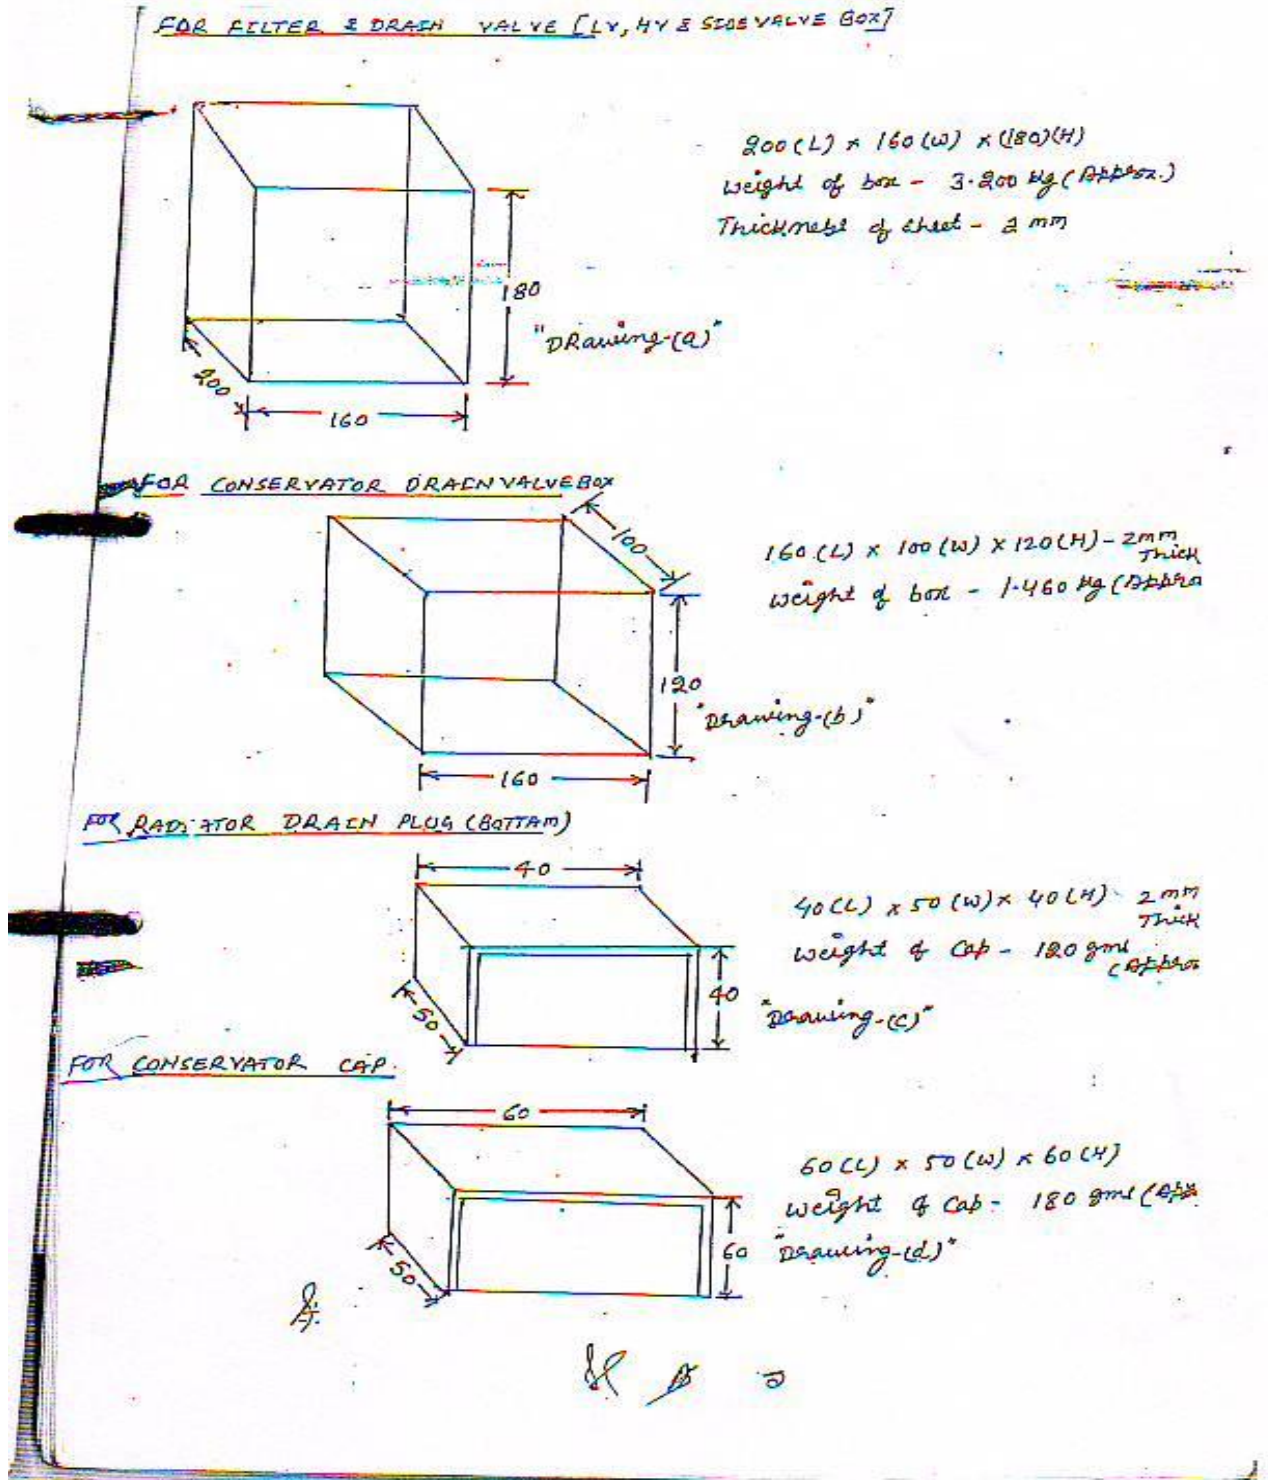 FOR FILTER & DRAIN VALVE [LV, HV & SIDE VALVE BOX]
200(L) × 160(W) × (180)(H)
Weight of box - 3.200 Kg (Approx.)
Thickness of sheet - 2 mm
180
"DRawing-(a)"
200
160
FOR CONSERVATOR DRAIN VALVE BOX
100
160(L) × 100(W) × 120(H) - 2mm
Thick
Weight of box - 1.460 Kg (Appro
120
"Drawing-(b)"
160
FOR RADIATOR DRAIN PLUG (BOTTAM)
40
40(L) × 50(W) × 40(H) - 2 mm
Thick
Weight of Cap - 120 gms
(Appro
40
50
"Drawing-(c)"
FOR CONSERVATOR CAP.
60
60(L) × 50(W) × 60(H)
Weight of Cap - 180 gms (App
60
"Drawing-(d)"
50